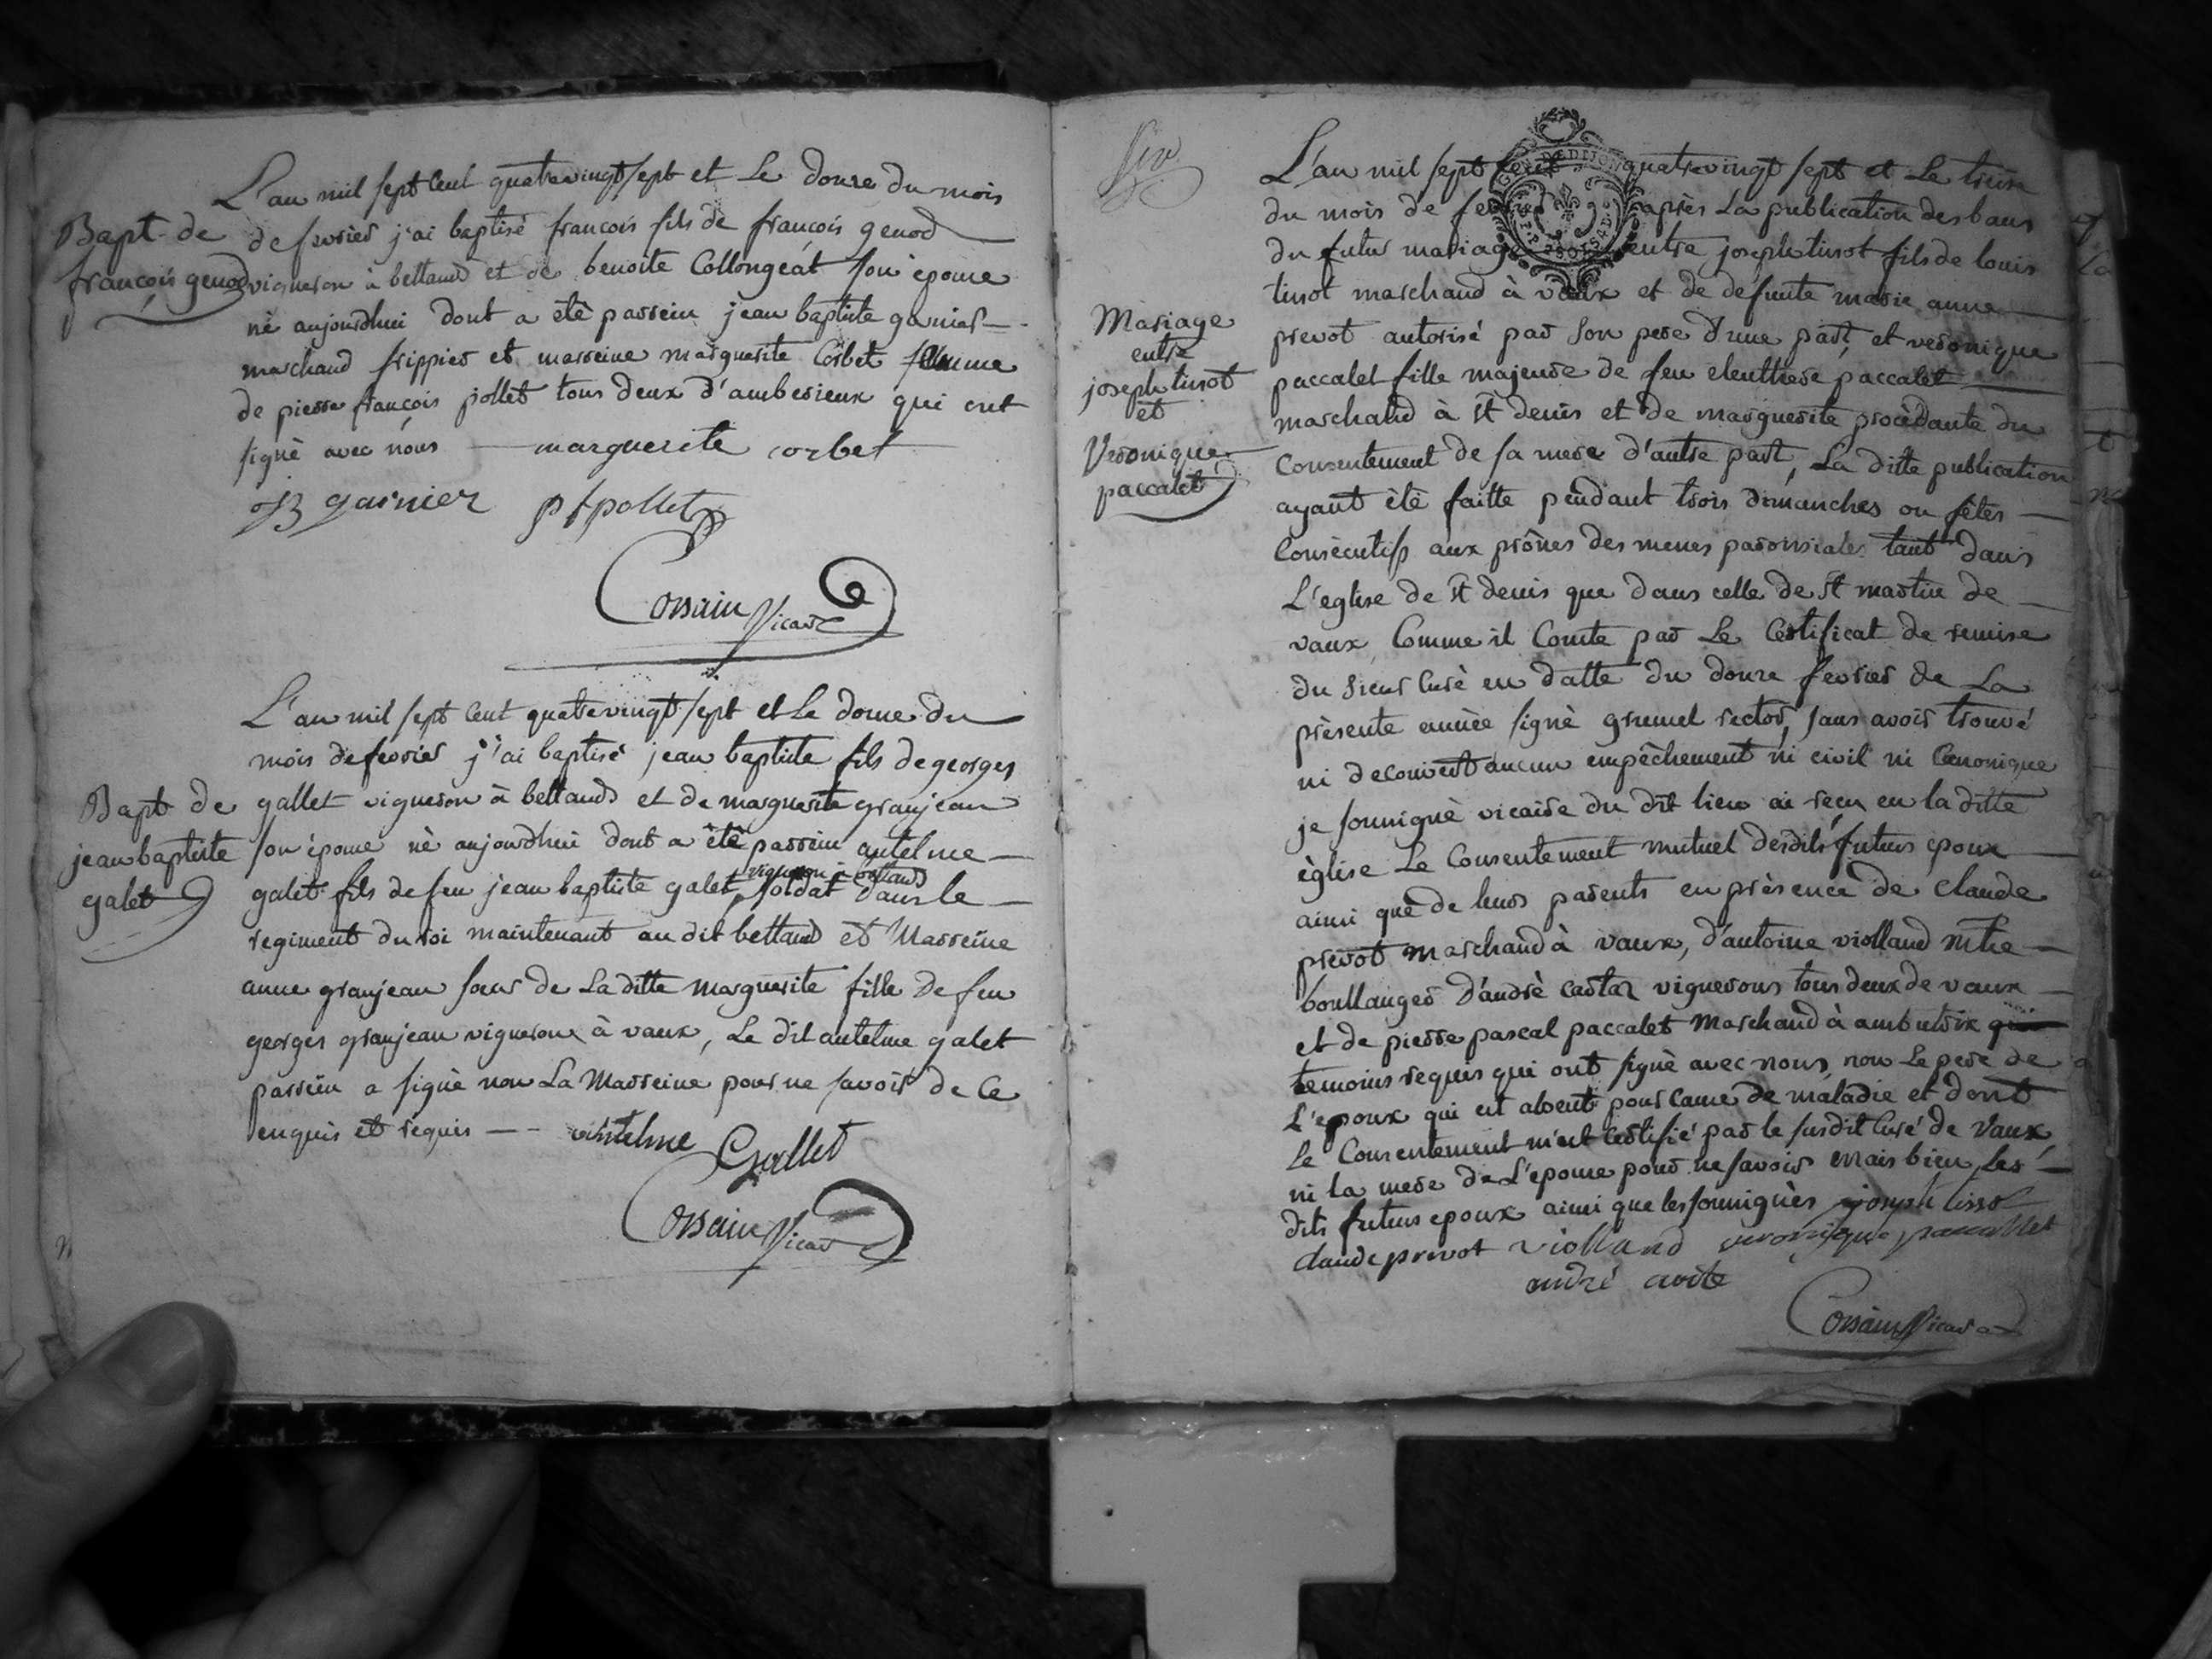 L'an mil sept cent quatrevingt sept et Le douze du mois
Bapt. de
françois genod
de fevrier j'ai baptisé françois fils de françois genod
vigneron à bettand et de benoite Collongeat son épouse
né aujourdhui dont a été parrein jean baptiste garnier
marchand frippier et marreine marguerite Corbet femme
de pierre françois pollet tous deux d'amberieux qui ont
signé avec nous marguerite corbet
JB garnier pfpollet
Corsain Vicaire
L'an mil sept cent quatrevingt sept et Le douze du
mois de fevrier j'ai baptisé jean baptiste fils de georges
Bapt de
jean baptiste
galet
gallet vigneron à bettand et de marguerite granjean
son épouse né aujourdhui dont a été parrein antelme
vigneron à bettand
galet fils de feu jean baptiste galet, soldat dans le
regiment du roi maintenant au dit bettand et Marreine
anne granjean soeur de La ditte marguerite fille de feu
georges granjean vigneron à vaux, Le dit antelme galet
parrein a signé non La Marreine pour ne savoir de ce
enquis et requis antelme Gallet
Corsain Vicaire
L'an mil sept cent quatrevingt sept et Le treize
du mois de fevrier après La publication des bans
du futur mariage entre joseph tissot fils de louis
tissot marchand à vaux et de defunte marie anne
Mariage
entre
joseph tissot
et
Veronique
paccalet
prevot autorisé par son pere d'une part, et veronique
paccalet fille majeure de feu eleuthere paccalet
marchand à st denis et de marguerite procèdante du
Consentement de sa mere d'autre part, La ditte publication
ayant été faitte pendant trois dimanches ou fêtes
Consécutifs aux prônes des messes paroissiales tant dans
L'eglise de st denis que dans celle de st martin de
vaux, Comme il Conste par Le Certificat de remise
du sieur Curé en datte du douze fevrier de La
présente année signé grumel rector, sans avoir trouvé
ni decouvert aucun empêchement ni civil ni Canonique
je soussigné vicaire du dit lieu ai reçu en la ditte
église Le Consentement mutuel desdits futurs epoux
ainsi que de leurs parents en présence de Claude
prevot marchand à vaux, d'antoine violland mtre
boullanger d'andré castaz vignerons tous deux de vaux
et de pierre pascal paccalet Marchand à ambutrix
temoins requis qui ont signé avec nous, non Le pere de
L'epoux qui est absent pour cause de maladie et dont
Le Consentement m'est certifié par le susdit Curé de Vaux
ni la mere de L'epouse pour ne savoir mais bien, Les
dits futurs epoux ainsi que les soussignés joseph tissot
claude prevot violland veronique paccallet
andré
Corsain Vicaire